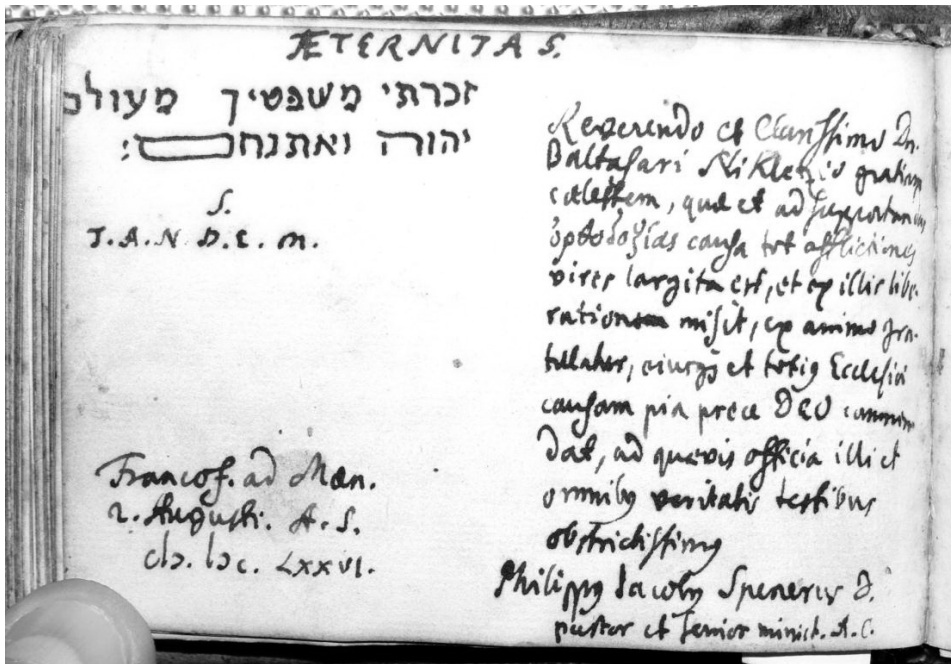 ÆTERNITAS.
זכרתי משפטיך מעולם
יהוה ואתנחם:
S.
T.A.N.D.E.M.
Francof. ad Mœn.
2. Augusti. A. S.
cIɔ. Iɔc. LXXVI.
Reverendo et Clarissimo Dn.
Baltasari Nikletzio gratiam
cœlestem, quæ et ad supportandas
ὀρθοδοξίας causa tot afflictiones
vires largita est, et ex illis libe-
rationem misit, ex animo gra-
tulatur, eiusq; et totius Ecclesiæ
causam pia prece DEO commen
dat, ad quævis officia illi et
omnibus veritatis testibus
obstrictissimus
Philippus Jacobus Spenerus D.
pastor et Senior minist. A.C.